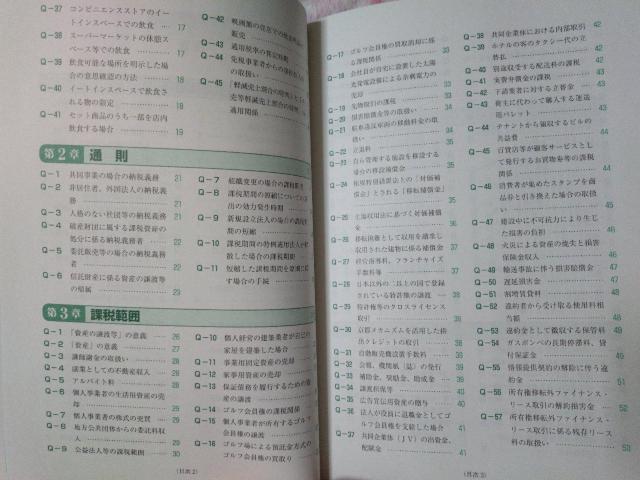 Q-37 コンビニエンスストアのイー
トインスペースでの飲食 17
Q-38 スーパーマーケットの休憩ス
ペース等での飲食 17
Q-39 飲食可能な場所を明示した場
合の意思確認の方法 18
Q-40 イートインスペースで飲食さ
れる物の販定 18
Q-41 セット商品のうち一部を店内
飲食する場合 19
Q-42 映画館の売店での飲食料品の
販売
Q-43 適用税率の判定時期
Q-44 免税事業者からの課税仕入れ
の取扱い
Q-45 「軽減売上割合の特例」と
売等軽減売上割合の特例」
適用関係
第2章 通則
Q-1 共同事業の場合の納税義務 21
Q-2 非居住者、外国法人の納税義
務 21
Q-3 人格のない社団等の納税義務 21
Q-4 破産財団に属する課税資産の
処分に係る納税義務者 22
Q-5 委託販売等の場合の納税義務
者 22
Q-6 信託財産に係る資産の譲渡等
の帰属 23
Q-7 組織変更の場合の課税期間
Q-8 課税期間の短縮についての届
出の効力発生時期
Q-9 新規設立法人の場合の課税期
間の短縮
Q-10 課税期間の特例適用法人が解
散した場合の課税期間
Q-11 短縮した課税期間を原則に戻
す場合の手続
第3章 課税範囲
Q-1 「資産の譲渡等」の意義 26
Q-2 「資産」の意義 27
Q-3 講師謝金の取扱い 28
Q-4 副業としての不動産収入 28
Q-5 アルバイト料 28
Q-6 個人事業者の生活用資産の売
却
Q-7 個人事業者の株式の売買 29
Q-8 地方公共団体からの委託料収
入 29
Q-9 公益法人等の課税範囲 30
Q-10 個人経営の建築業者が自己の
家屋を建築した場合
Q-11 事業用固定資産の売却
Q-12 家事用資産の売却
Q-13 保証債務を履行するための資
産の譲渡
Q-14 ゴルフ会員権の課税関係
Q-15 個人事業者が所有するゴルフ
会員権の譲渡
Q-16 ゴルフ場による預託金方式の
ゴルフ会員権の買取り
(目次2)
Q-17 ゴルフ会員権の買取消却に係
る課税関係 33
Q-18 会社員が自宅に設置した太陽
光発電設備による余剰電力の
売却
Q-19 先物取引の課税
Q-20 損害賠償金等の取扱い 34
Q-21 駐車違反車両の移動料金の取
扱い
Q-22 立退料 35
Q-23 自ら管理する施設を移設する
場合の移設補償金 35
Q-24
償金」とされる「移転補償金」
Q-25 土地収用法に基づく対価補償
金 36
Q-26 移転困難として収用を請求し
取得された建物に係る補償金 37
Q-27 経営指導料、フランチャイズ
手数料等 37
Q-28 日本以外の二以上の国で登録
されている特許権の譲渡 38
Q-29 特許権等のクロスライセンス
取引 38
Q-30 京都メカニズムを活用した排
出クレジットの取引
Q-31 自動販売機設置手数料
Q-32 会報、機関紙(誌)の発行 39
Q-33 補助金、奨励金、助成金
Q-34 譲渡担保等 40
Q-35 広告宣伝用資産の贈与 40
Q-36 法人が役員に退職金としてゴ
ルフ会員権を支給した場合 41
Q-37 共同企業体(JV)の出資金、
配賦金 41
Q-38 共同企業体における内部取引 42
Q-39 ホテルの客のタクシー代の立
替払 42
Q-40 別途収受する配送料の課税 42
Q-41 実費弁償金の課税 42
Q-42 下請業者に対する立替金 43
Q-43 荷主に代わって購入する運送
用パレット 43
Q-44 テナントから領収するビルの
共益費
Q-45 百貨店等が顧客サービスとし
て発行するお買物券等の課税
関係
Q-46 消費者が集めたスタンプを商
品券と引き換えた場合の取扱
い 45
Q-47 建設中に不可抗力により生じ
た損害の負担 46
Q-48 火災による資産の焼失と損害
保険金収入 46
Q-49 輸送事故に伴う損害賠償金 46
Q-50 遅延損害金 47
Q-51 割増賃貸料 48
Q-52 違約者から受け取る使用料相
当額 48
Q-53 違約金として徴収する保管料 49
Q-54 ガスボンベの長期停滞料、貸
付保証金
Q-55 情報提供契約の解除に伴う違
約金 51
Q-56 所有権移転外ファイナンス・
リース取引の解約損害金 52
Q-57 所有権移転外ファイナンス・
リース取引に係る残存リース
料の取扱い 53
(目次3)